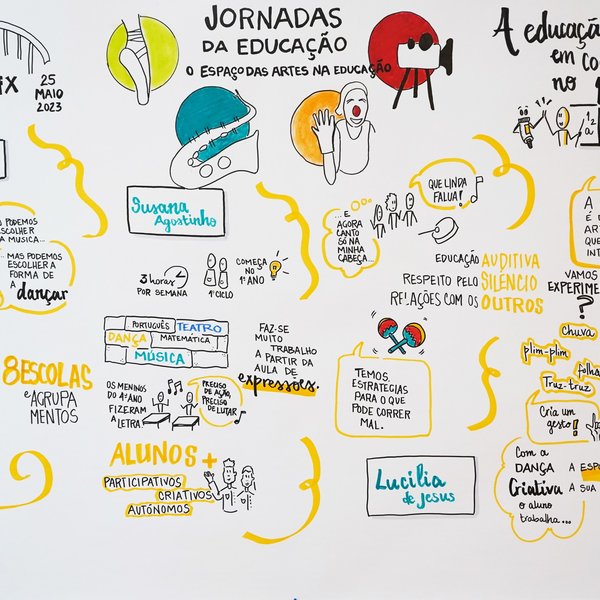 JORNADAS
DA EDUCAÇÃO
O ESPAÇO DAS ARTES NA EDUCAÇÃO
25
MAIO
2023
A educação
em co
no
1
2
a
PODEMOS
ESCOLHER
A MUSICA...
... MAS PODEMOS
ESCOLHER A
FORMA DE
dançar
8 ESCOLAS
e AGRUPA
MENTOS
Susana
Agostinho
3 horas
POR SEMANA
1º CICLO
COMEÇA
NO
1º ANO
PORTUGUÊS
TEATRO
DANÇA
MATEMÁTICA
MÚSICA
FAZ-SE
MUITO
TRABALHO
A PARTIR DA
AULA DE
expressões.
OS MENINOS
DO 4º ANO
FIZERAM
A LETRA
PRECISO
DE AÇÃO,
PRECISO
DE LUTAR
ALUNOS +
PARTICIPATIVOS
CRIATIVOS
AUTÓNOMOS
... E
AGORA
CANTO
SÓ NA
MINHA
CABEÇA...
QUE LINDA
FALUA!
EDUCAÇÃO AUDITIVA
RESPEITO PELO SILÊNCIO
RELAÇÕES COM OS OUTROS
TEMOS
ESTRATEGIAS
PARA O QUE
PODE CORRER
MAL.
Lucilia
de Jesus
A
É U
ART
QUE
INT
VAMOS
EXPERIME
?
chuva
plim-plim
folha
Truz-truz
Cria um
gesto!
Com a
DANÇA
Criativa
o aluno
trabalha...
A ESPO
A SUA